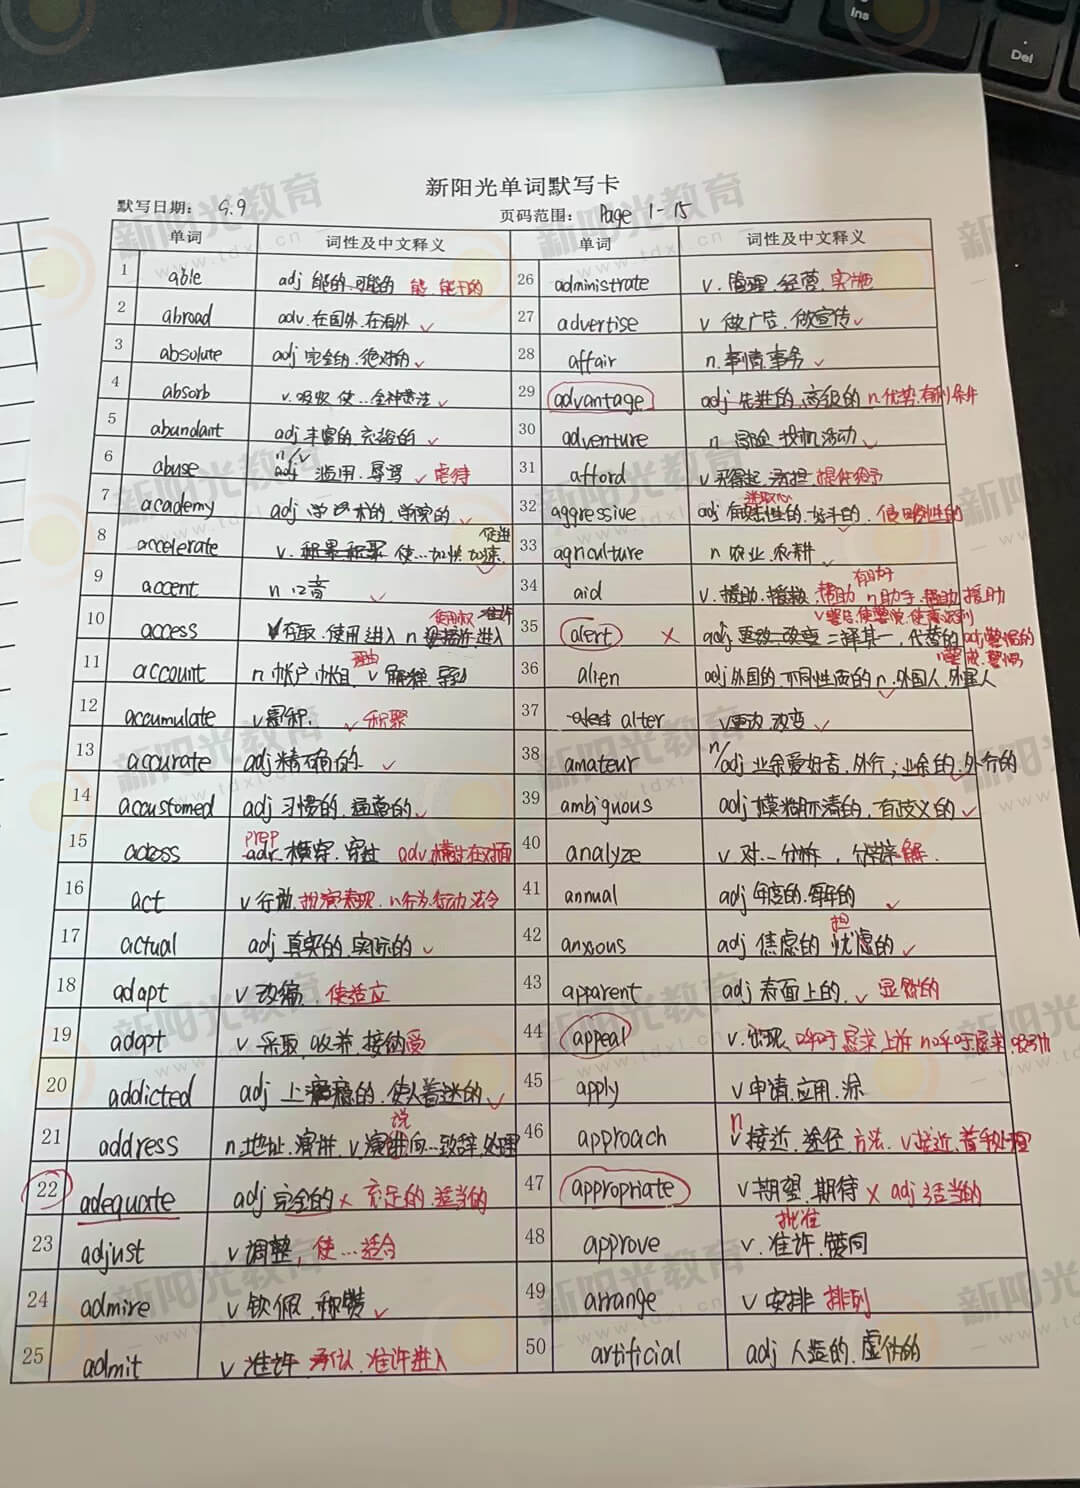 Ins
Del
新阳光单词默写卡
默写日期: 9.9 页码范围: Page 1-15
单词 词性及中文释义 单词 词性及中文释义
1 able adj 能的.可能的 能.能干的
26 administrate v.管理.经营.实施
2 abroad adv.在国外.在海外
27 advertise v 做广告.做宣传
3 absolute adj 完全的.绝对的
28 affair n.事情.事务
4 absorb v.吸收 使…全神贯注
29 advantage adj 先进的.高级的 n.优势.有利条件
5 abundant adj 丰富的.充裕的
30 adventure n 冒险 投机活动
6 abuse n/v adj 滥用.辱骂 虐待
31 afford v 买得起.承担.提供给予
7 academy adj 学术的.学院的
32 aggressive adj 好斗的.侵略性的
8 accelerate v. 使…加快 加速 促进
33 agriculture n 农业.农耕
9 accent n 口音
34 aid v.援助.帮助 n 助手.辅助 援助
10 access v 存取.使用.进入 n 进入 使用权
35 alert adj 更改.改变 二择其一.代替的 adj 警惕的
11 account n 帐户 帐目 v 解释 导致 理由
36 alien adj 外国的.不同性质的 n.外国人.外星人
12 accumulate v 累积. 积聚
37 alert alter v 更改.改变
13 accurate adj 精确的
38 amateur n/adj 业余爱好者.外行;业余的.外行的
14 accustomed adj 习惯的.适应的
39 ambiguous adj 模糊不清的.有歧义的
15 prep adv 横穿.穿过 adv 横过 在对面
40 analyze v.对…分析, 分解.
16 act v 行动.扮演 表现. n 行为.行动 法令
41 annual adj 年度的.每年的
17 actual adj 真实的.实际的
42 anxious adj 焦虑的 忧虑的 担
18 adapt v 改编.使适应
43 apparent adj 表面上的. 显然的
19 adopt v 采取.收养.接纳 受
44 appeal v. 呼吁 恳求 上诉 n 呼吁 恳求.吸引力
20 addicted adj 上瘾的.使人着迷的
45 apply v 申请.应用.涂
21 address n.地址.演讲.v 演说 向…致辞.处理
46 approach n v 接近.途径.方法. v 接近.着手处理
22 adequate adj 完全的 × 充足的.适当的
47 appropriate v 期望.期待 × adj 适当的
23 adjust v 调整, 使…适合
48 approve v.准许.赞同 批准
24 admire v 钦佩.称赞
49 arrange v 安排 排列
25 admit v 准许 承认.准许进入
50 artificial adj 人造的.虚伪的
新阳光教育
www.tdxl.cn